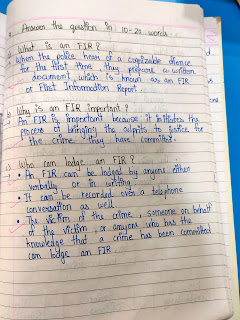 Answer the question in 10-20 words.
What is an FIR?
When the police hear of a cognizable offence
for the first time, they prepare a written
document which is known as an FIR
or First Information Report.
b. Why is an FIR important?
An FIR is important because it initiates the
process of bringing the culprits to justice for
the crime they have commited.
Who can lodge an FIR?
• An FIR can be lodged by anyone either
verbally or in writing.
• It can be recorded over a telephone
conversation as well.
• The victim of the crime, someone on behalf
of the victim, or anyone who has the
knowledge that a crime has been committed
can lodge an FIR.